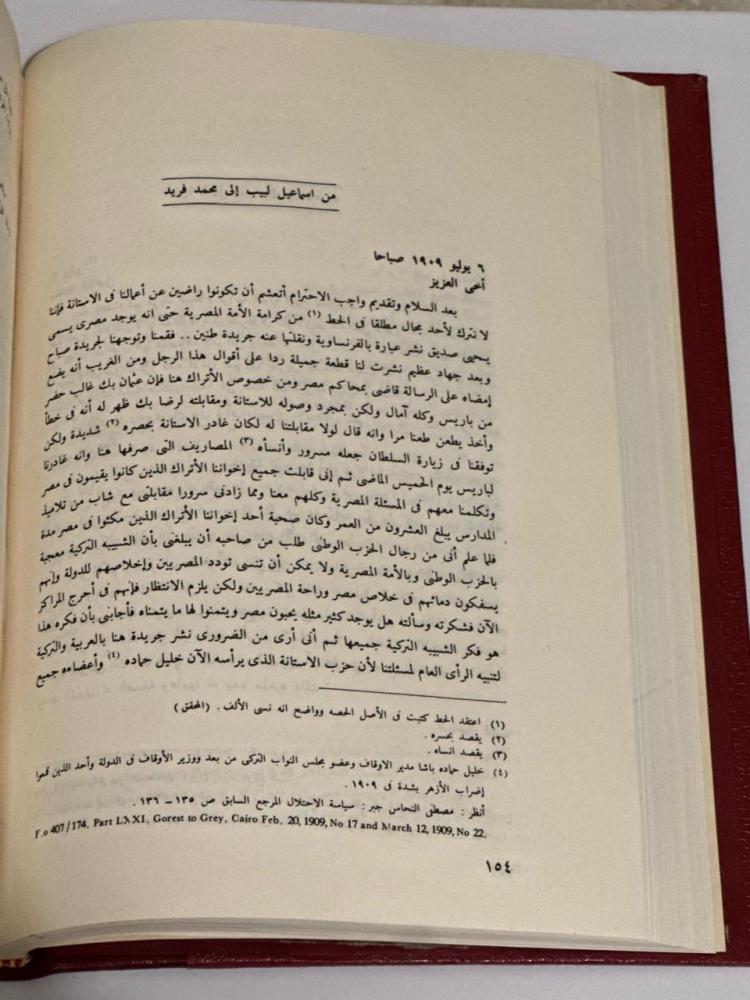 من اسماعيل لبيب إلى محمد فريد
٦ يوليو ١٩٠٩ صباحا
أخى العزيز
بعد السلام وتقديم واجب الاحترام أتعشم أن تكونوا راضين عن أعمالنا فى الاستانة فإننا
لا نترك لأحد بحال مطلقا فى الحط (١) من كرامة الأمة المصرية حتى انه يوجد مصرى يسمى
يحيى صديق نشر عبارة بالفرنساوية ونقلتها عنه جريدة طنين .. فقمنا وتوجهنا لجريدة صباح
وبعد جهاد عظيم نشرت لنا قطعة جميلة ردا على أقوال هذا الرجل ومن الغريب أنه يضع
إمضاه على الرسالة قاضى بمحاكم مصر ومن خصوص الأتراك هنا فإن عثمان بك غالب حضر
من باريس وكله آمال ولكن بمجرد وصوله للاستانة ومقابلته لرضا بك ظهر له أنه فى خطأ
وأخذ يطعن طعنا مرا وانه قال لولا مقابلتنا له لكان غادر الاستانة بحصره (٢) شديدة ولكن
توفقنا فى زيارة السلطان جعله مسرور وأنسأه (٣) المصاريف التى صرفها هنا وانه غادرنا
لباريس يوم الخميس الماضى ثم إنى قابلت جميع إخواننا الأتراك الذين كانوا يقيمون فى مصر
وتكلمنا معهم فى المسئلة المصرية وكلهم معنا ومما زادنى سرورا مقابلتى مع شاب من تلاميذ
المدارس يبلغ العشرون من العمر وكان صحبة أحد إخواننا الأتراك الذين مكثوا فى مصر مدة
فلما علم أنى من رجال الحزب الوطنى طلب من صاحبه أن يبلغنى بأن الشبيبه التركية معجبة
بالحزب الوطنى وبالأمة المصرية ولا يمكن أن تنسى تودد المصريين وإخلاصهم للدولة وإنهم
يسفكون دمائهم فى خلاص مصر وراحة المصريين ولكن يلزم الانتظار فإنهم فى أحرج المراكز
الآن فشكرته وسألته هل يوجد كثير مثله يحبون مصر ويتمنوا لها ما يتمناه فأجابنى بأن فكره هذا
هو فكر الشبيبه التركية جميعها ثم أنى أرى من الضرورى نشر جريدة هنا بالعربية والتركية
لتنبيه الرأى العام لمسئلتنا لأن حزب الاستانة الذى يرأسه الآن خليل حماده (٤) وأعضاءه جميع
(١) اعتقد الحط كتبت فى الأصل الحصه وواضح انه نسى الألف . (المحقق)
(٢) يقصد بحسره .
(٣) يقصد انساه .
(٤) خليل حماده باشا مدير الاوقاف وعضو بمجلس النواب التركى من بعد ووزير الأوقاف فى الدولة وأحد الذين قمعوا
إضراب الأزهر بشدة فى ١٩٠٩ .
أنظر : مصطفى النحاس جبر : سياسة الاحتلال المرجع السابق ص ١٣٥ – ١٣٦ .
F.o 407/174. Part LXXI, Gorest to Grey, Cairo Feb. 20, 1909, No 17 and March 12, 1909, No 22.
١٥٤